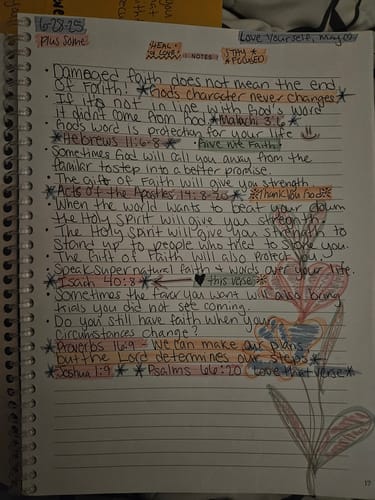 6-28-25
Love Yourself,
Plus Some
HEAL + LOVE!
NOTES
STAY FOCUSED
• Damaged faith does not mean the end
Of Faith! *God's character never changes*
• If it's not in line with God's word
it didn't come from God. *Malachi 3:6*
• God's word is protection for your life
*Hebrews 11:6-8* Give me Faith!
• Sometimes God will call you away from the
familiar to step into a better promise.
• The Gift of Faith will give you strength.
*Acts of the Apostles 14:8-20* *Thank You God*
• When the world wants to beat you down
the Holy Spirit will give you strength
• The Holy Spirit will give you strength to
stand up to people who tried to stone you.
• The Gift of Faith will also protect you.
• Speak supernatural faith + words over your life.
*Isaiah 40:8* this verse
• Sometimes the favor you want will also bring
trials you did not see coming.
• Do you still have faith when your
circumstances change?
*Proverbs 16:9 - We can make our plans
but the Lord determines our steps*
*Joshua 1:9* *Psalms 66:20 Love that verse*
17